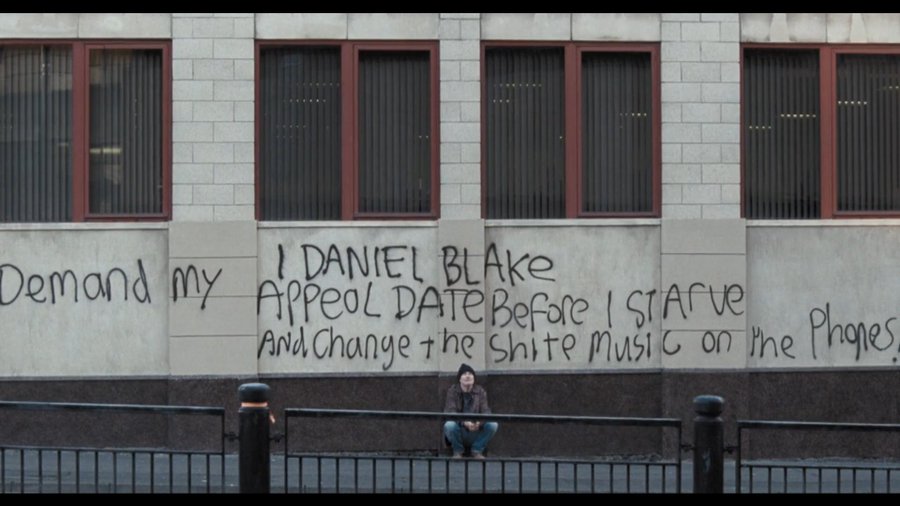 I DANIEL BLAKE
Demand my APPeaL DATE Before I STARVE
And Change the shite Music on the Phones!